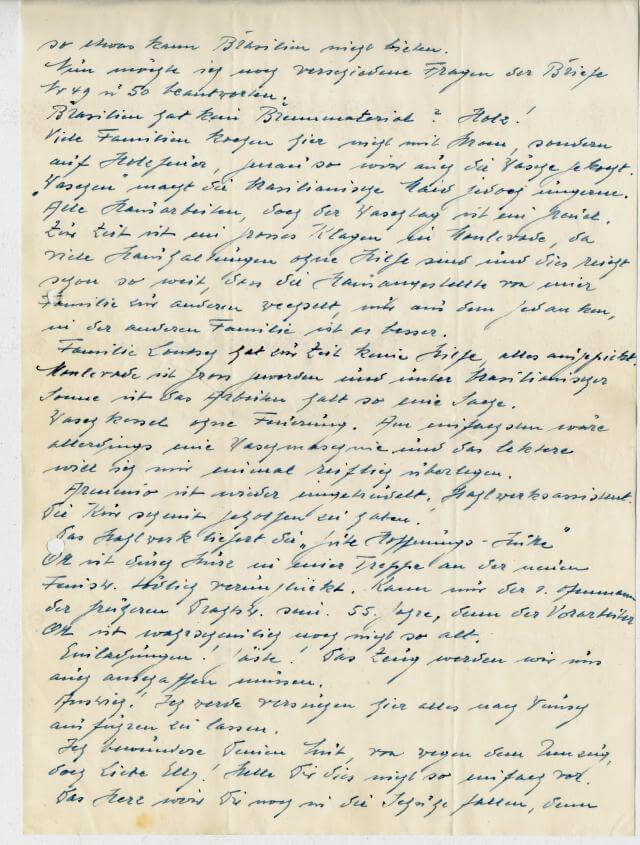 so etwas kann Brasilien nicht bieten.
Nun möchte ich noch verschiedene Fragen der Briefe
Nr 49 u 50 beantworten.
Brasilien hat kein Brennmaterial? Holz!
Viele Familien kochen hier nicht mit Strom, sondern
auf Holzfeuer, genau so wird auch die Wäsche gekocht.
"Waschen" macht die brasilianische Maid jedoch ungerne.
Alle Hausarbeiten, doch der Waschtag ist ein
Zur Zeit ist ein grosses Klagen in Monlevade, da
viele Haushaltungen ohne Hilfe sind und dies reicht
schon so weit, dass die Hausangestellte von einer
Familie zur anderen wechselt, nur aus dem Gedanken,
in der anderen Familie ist es besser.
Familie hat zur Zeit keine Hilfe, alles
Monlevade ist gross geworden und unter brasilianischer
Sonne ist das Arbeiten halt so eine Sache.
Waschkessel ohne Feuerung. Am einfachsten wäre
allerdings eine Waschmaschine und das letztere
will ich mir einmal reiflich überlegen.
Arminio ist wieder Stahlwerksassistent.
Die Kur scheint geholfen zu haben.
Das Stahlwerk liefert die "Gute Hoffnungs-Hütte"
Ott ist durch Sturz in einer Treppe an der neuen
tödlich verunglückt. Kann nur der 1.
der früheren sein. 55 Jahre, denn der Vorarbeiter
Ott ist wahrscheinlich noch nicht so alt.
Einladungen! Gäste! Das Zeug werden wir uns
auch anschaffen müssen.
Anstrich! Ich werde versuchen hier alles nach Wunsch
ausführen zu lassen.
Ich bewundere Deinen Mut, von wegen dem Umzug,
doch liebe Elly! Stelle Dir dies nicht so einfach vor.
Das Herz wird Dir noch in die Schuhe fallen, denn